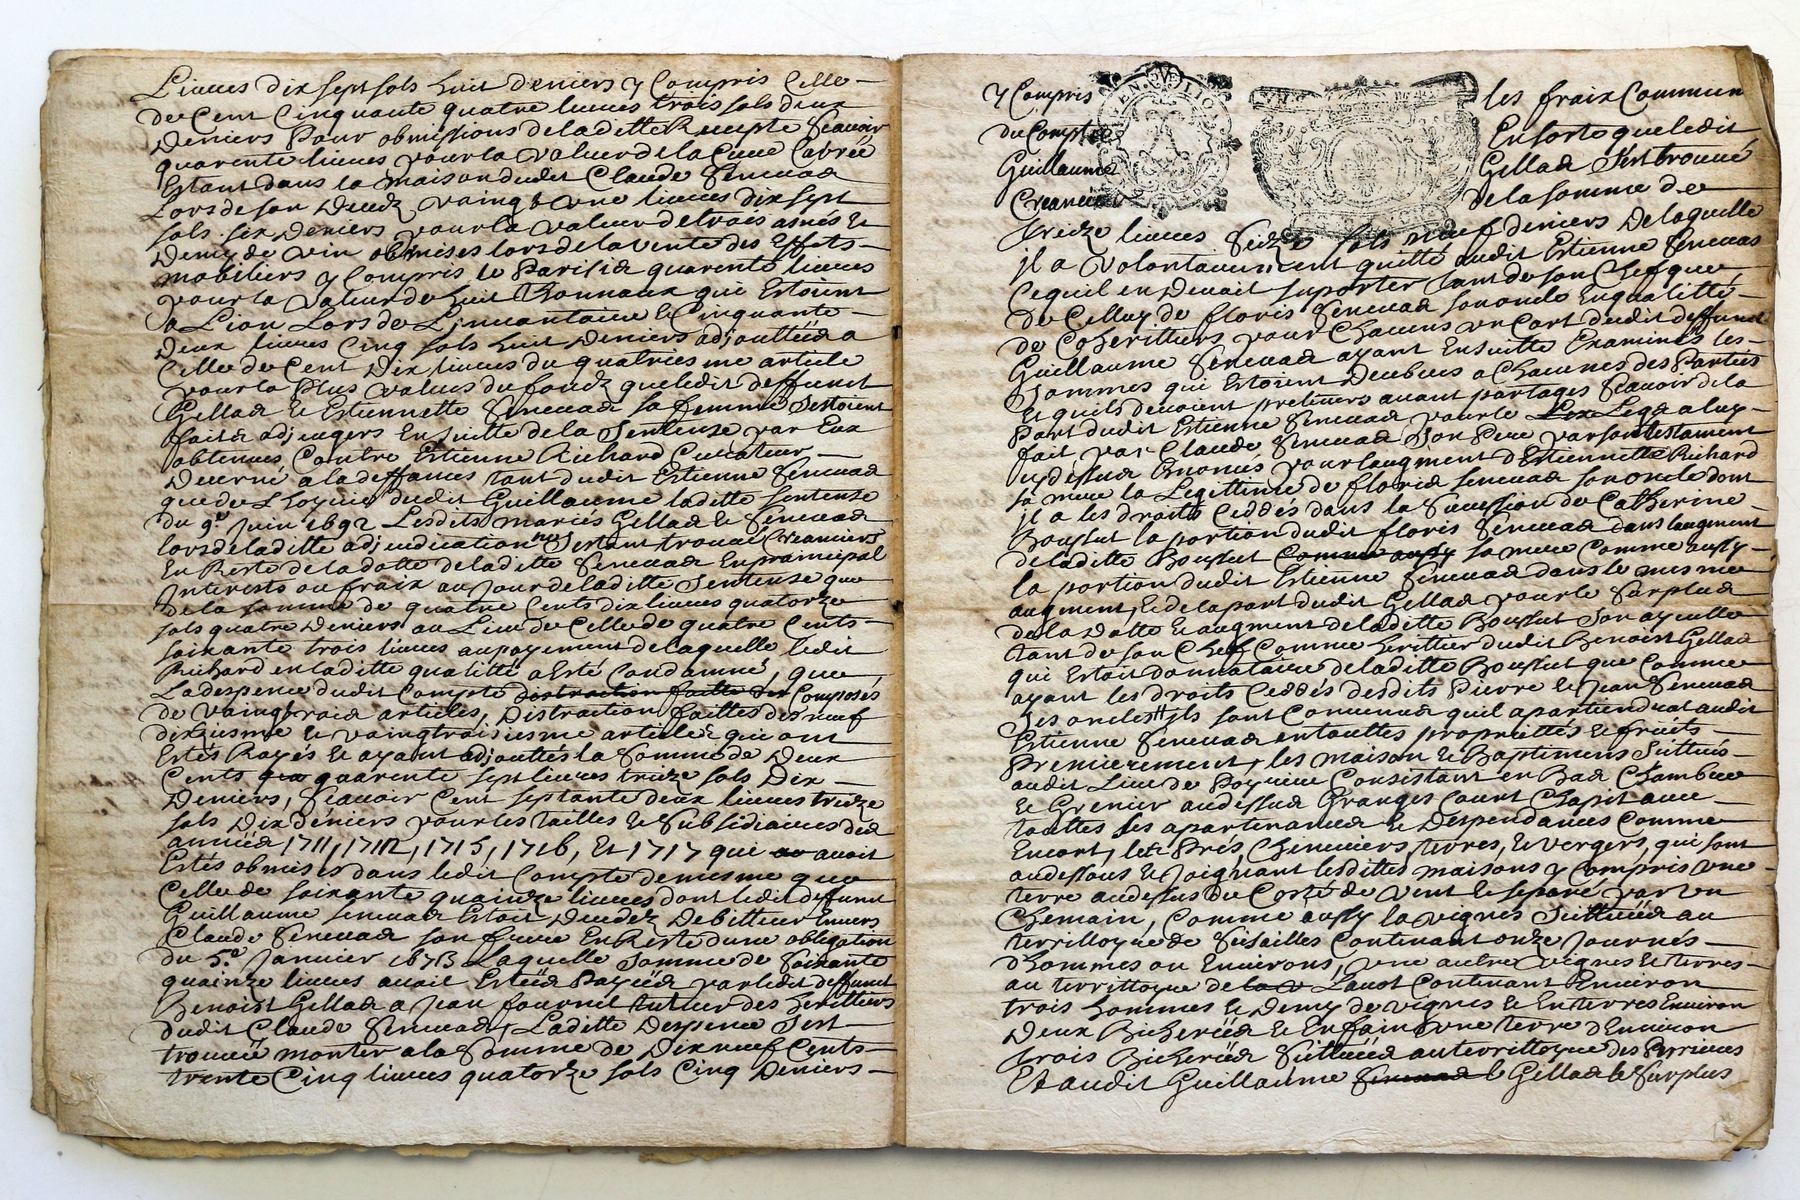 Livres dix sept sols huit deniers y Compris Celle
de Cent Cinquante quatre livres trois sols deux
Deniers Pour obmissions de laditte Recepte Scavoir
quarente livres pour la Valeur de la Cuve Cabrée
Estant dans la maison dudit Claude
Lors de son Decedz, vaingt une livres dix sept
sols six Deniers pour la valeur de trois asnés &
Demy de vin obmises lors de la vente des Effets
mobiliers y Compris le Parisis quarente livres
pour la valeur de huit Thonnaux qui Estoient
a Lion Lors de L'inventaire & Cinquante
Deux livres Cinq sols huit Deniers adjouttés a
Celle de Cent Dix livres du quatriesme article
pour la Plus value du fondz que ledit deffunct
Gellas & Estiennette sa femme s'estoient
faits adjugers Ensuitte de la Sentense par Eux
obtenues Contre Estienne Richard Curateur
Decerné a la deffances tant dudit Estienne
que de l'hoyrie dudit Guillaume laditte sentense
du 9e Juin 1692 Lesdits mariés Gellas &
lors de laditte adjudication ne s'estant trouvé Creanciers
En Reste de la dotte de laditte En principal
Interests ou fraix au Jour de laditte Sentense que
de la somme de quatre Cents dix livres quatorze
sols quatre Deniers au Lieu de Celle de quatre Cents
soixante trois livres au payement de laquelle ledit
Richard en laditte qualitté a Esté Condamné, que
La despence dudit Compte distraction faitte des Composés
de vaingt trois articles, Distraction faittes des neuf
dixiesme & vaingt troisiesme articles qui ont
Estés Rayés & ayant adjouttés la Somme de Deux
Cents quarente sept livres treize sols Dix
Deniers, Scavoir Cent septante deux livres treize
sols Dix déniers pour les tailles & Subsidiaires des
annés 1711, 1712, 1715, 1716, Et 1717 que avoit
Estés obmises dans ledit Compte de mesme que
Celle de soixante quainze livres dont ledit deffunt
Guillaume Estoit Decedez Debitteur Envers
Claude son frere En Reste d'une obligation
du 5e Janvier 1673 Laquelle Somme de Soixante
quainze livres avait Estés Payés par ledit deffunct
Benoist Gellas a Jean fournil tutteur des heritiers
dudit Claude Laditte Despence s'est
trouvée monter a la Somme de Dix neuf Cents
trente Cinq livres quatorze sols Cinq Deniers
y Compris les fraix Commun
du Compte En sorte que ledit
Guillaume Gellas s'est trouvé
Creancié de la somme de
treize livres Seize sols neuf deniers De laquelle
il a volontairement quitté audit Estienne
Ce quil en Devait suporter tant de son Chef que
de Celluy de floris son oncle En qualitté
de Coherittiers pour Chacuns un Cart dudit deffunct
Guillaume ayant Ensuitte Examinés les
Sommes qui Estoient Deubues a Chacunes des Parties
Et quils devoient prelever avant partages Scavoir de la
Part dudit Estienne pour le Legs a luy
fait par Claude Son Pere par son testament
sa mere la Legittime de floris son oncle dont
il a les droits Ceddés dans la Succession de Catherine
Boussut la portion dudit floris dans l'augment
de laditte Boussut Comme aussy sa mere Comme aussy
la portion dudit Estienne dans le mesme
augment, & de la part dudit Gellas pour le surplus
de la Dotte & augment de laditte Boussut Son ayeulle
tant de son Chef Comme herittier dudit Benoist Gellas
qui Estoit donnataire de laditte Boussut que Comme
ayant les droits Ceddés desdits Pierre & Jean
ses oncles ils sont Convenus quil apartiendrat audit
Estienne en touttes proprietés & fruits
Premierement, les maison & Baptimens Sittués
audit Lieu de Consistant en Bas Chambre
& Grenier audessus Granges Court Chapit avec
touttes ses apartenances & Despendances Comme
Encort, les Prés Chenevier, terres, & vergers, qui sont
audessous & Joignant lesdittes maisons y Compris une
terre audessus du Costé de Vent & separé par un
Chemain, Comme aussy la vignes Sittués au
territtoyre de Continant onze Journés
d'hommes ou Environs, une autre vignes & terres
au territtoyre de Lavot Contenant Environ
trois hommes & Demy de vignes & En terres Environ
Deux Bicherés & Enfain une terre d'Environ
trois Bicherés Sittués au territtoyre des Perrieres
Et audit Guillaume Gellas le Surplus